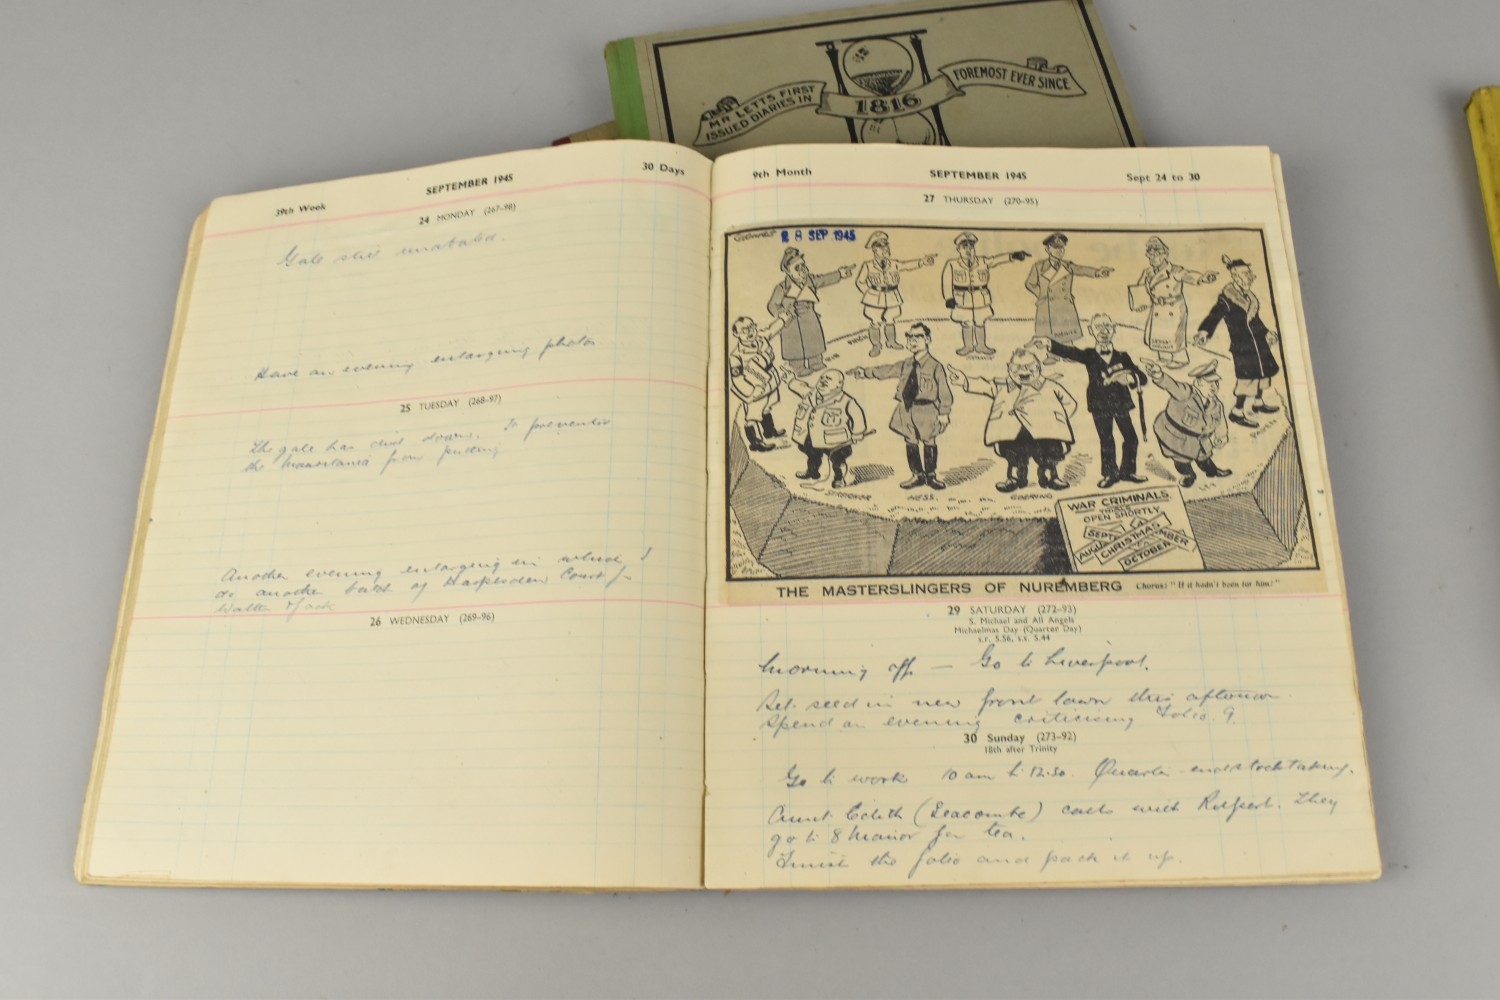 MR LETTS FIRST
ISSUED DIARIES IN
1816
FOREMOST EVER SINCE
39th Week
SEPTEMBER 1945
30 Days
24 MONDAY (267-98)
Gale still unabated.
Have an evening enlarging photos
25 TUESDAY (268-97)
The gale has died down. It prevented
the Mauretania from
Another evening enlarging in which I
do another batch of Harpsden Court for
Walter & Jack
26 WEDNESDAY (269-96)
9th Month
SEPTEMBER 1945
Sept 24 to 30
27 THURSDAY (270-95)
28 SEP 1945
STREICHER
HESS
GOERING
LEY
WAR CRIMINALS
TRIALS
OPEN SHORTLY
CHRISTMAS
OCTOBER
THE MASTERSLINGERS OF NUREMBERG Chorus: "If it hadn't been for him!"
29 SATURDAY (272-93)
S. Michael and All Angels
Michaelmas Day (Quarter Day)
s.r. 5.56, s.s. 5.44
Morning off — Go to Liverpool.
Set seed in new front lawn this afternoon.
Spend an evening criticising Folio 9.
30 Sunday (273-92)
18th after Trinity
Go to work 10 am to 12.30. Quarter end stocktaking.
Aunt Edith (Seacombe) calls with Rupert. They
go to 8 Manor for tea.
Finish the folio and pack it up.